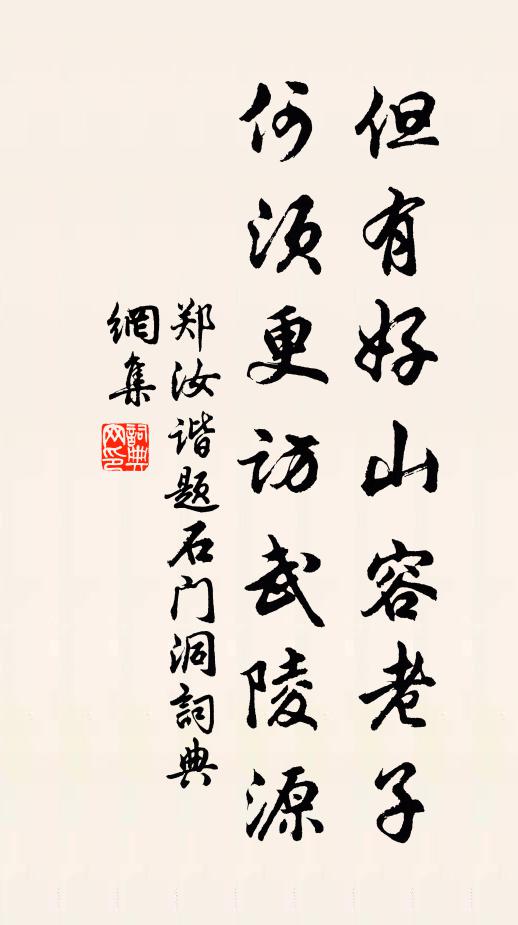 但有好山容老子
何须更访武陵源
郑汝谐题石门洞詞典
網集
詞典
网印